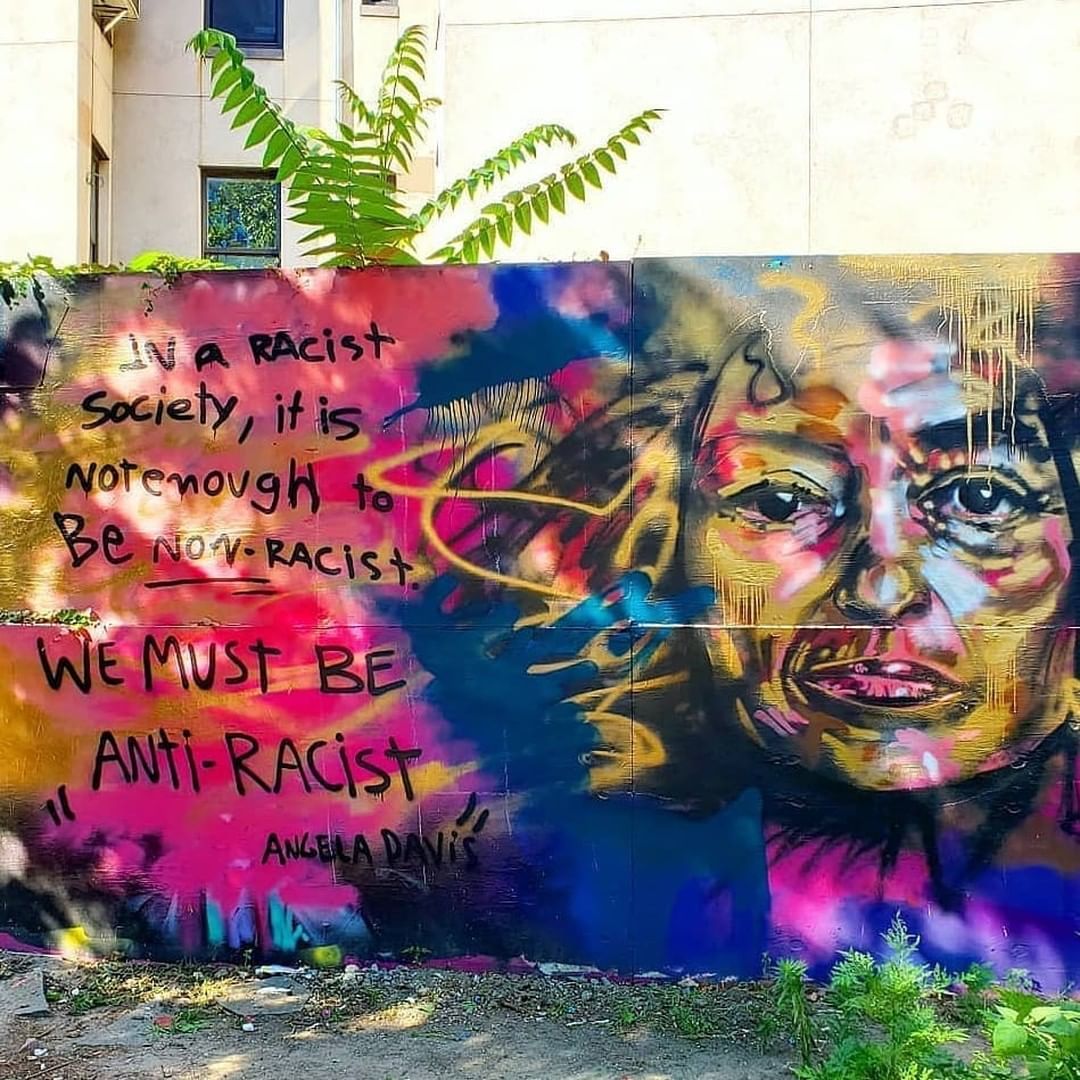 IN a RAcist
Society, it is
Not enough to
Be NON-RAcist.
WE MUST BE
ANti-RACist
" ANGELA DAVis "